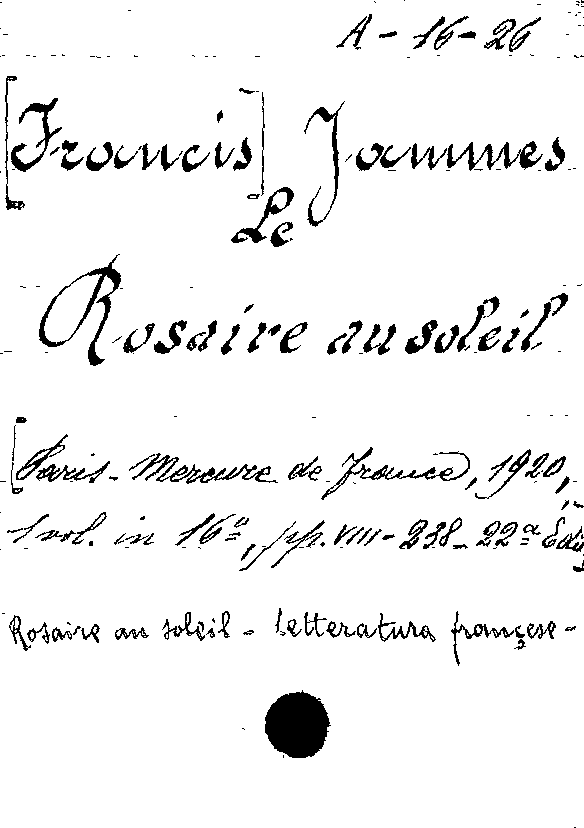 A - 16 - 26
[Francis] Jammes
Le
Rosaire au soleil
[Paris - Mercure de France, 1920,
1 vol. in 16º, pp. VIII - 238 - 22ª
Rosaire au soleil - Letteratura françese -